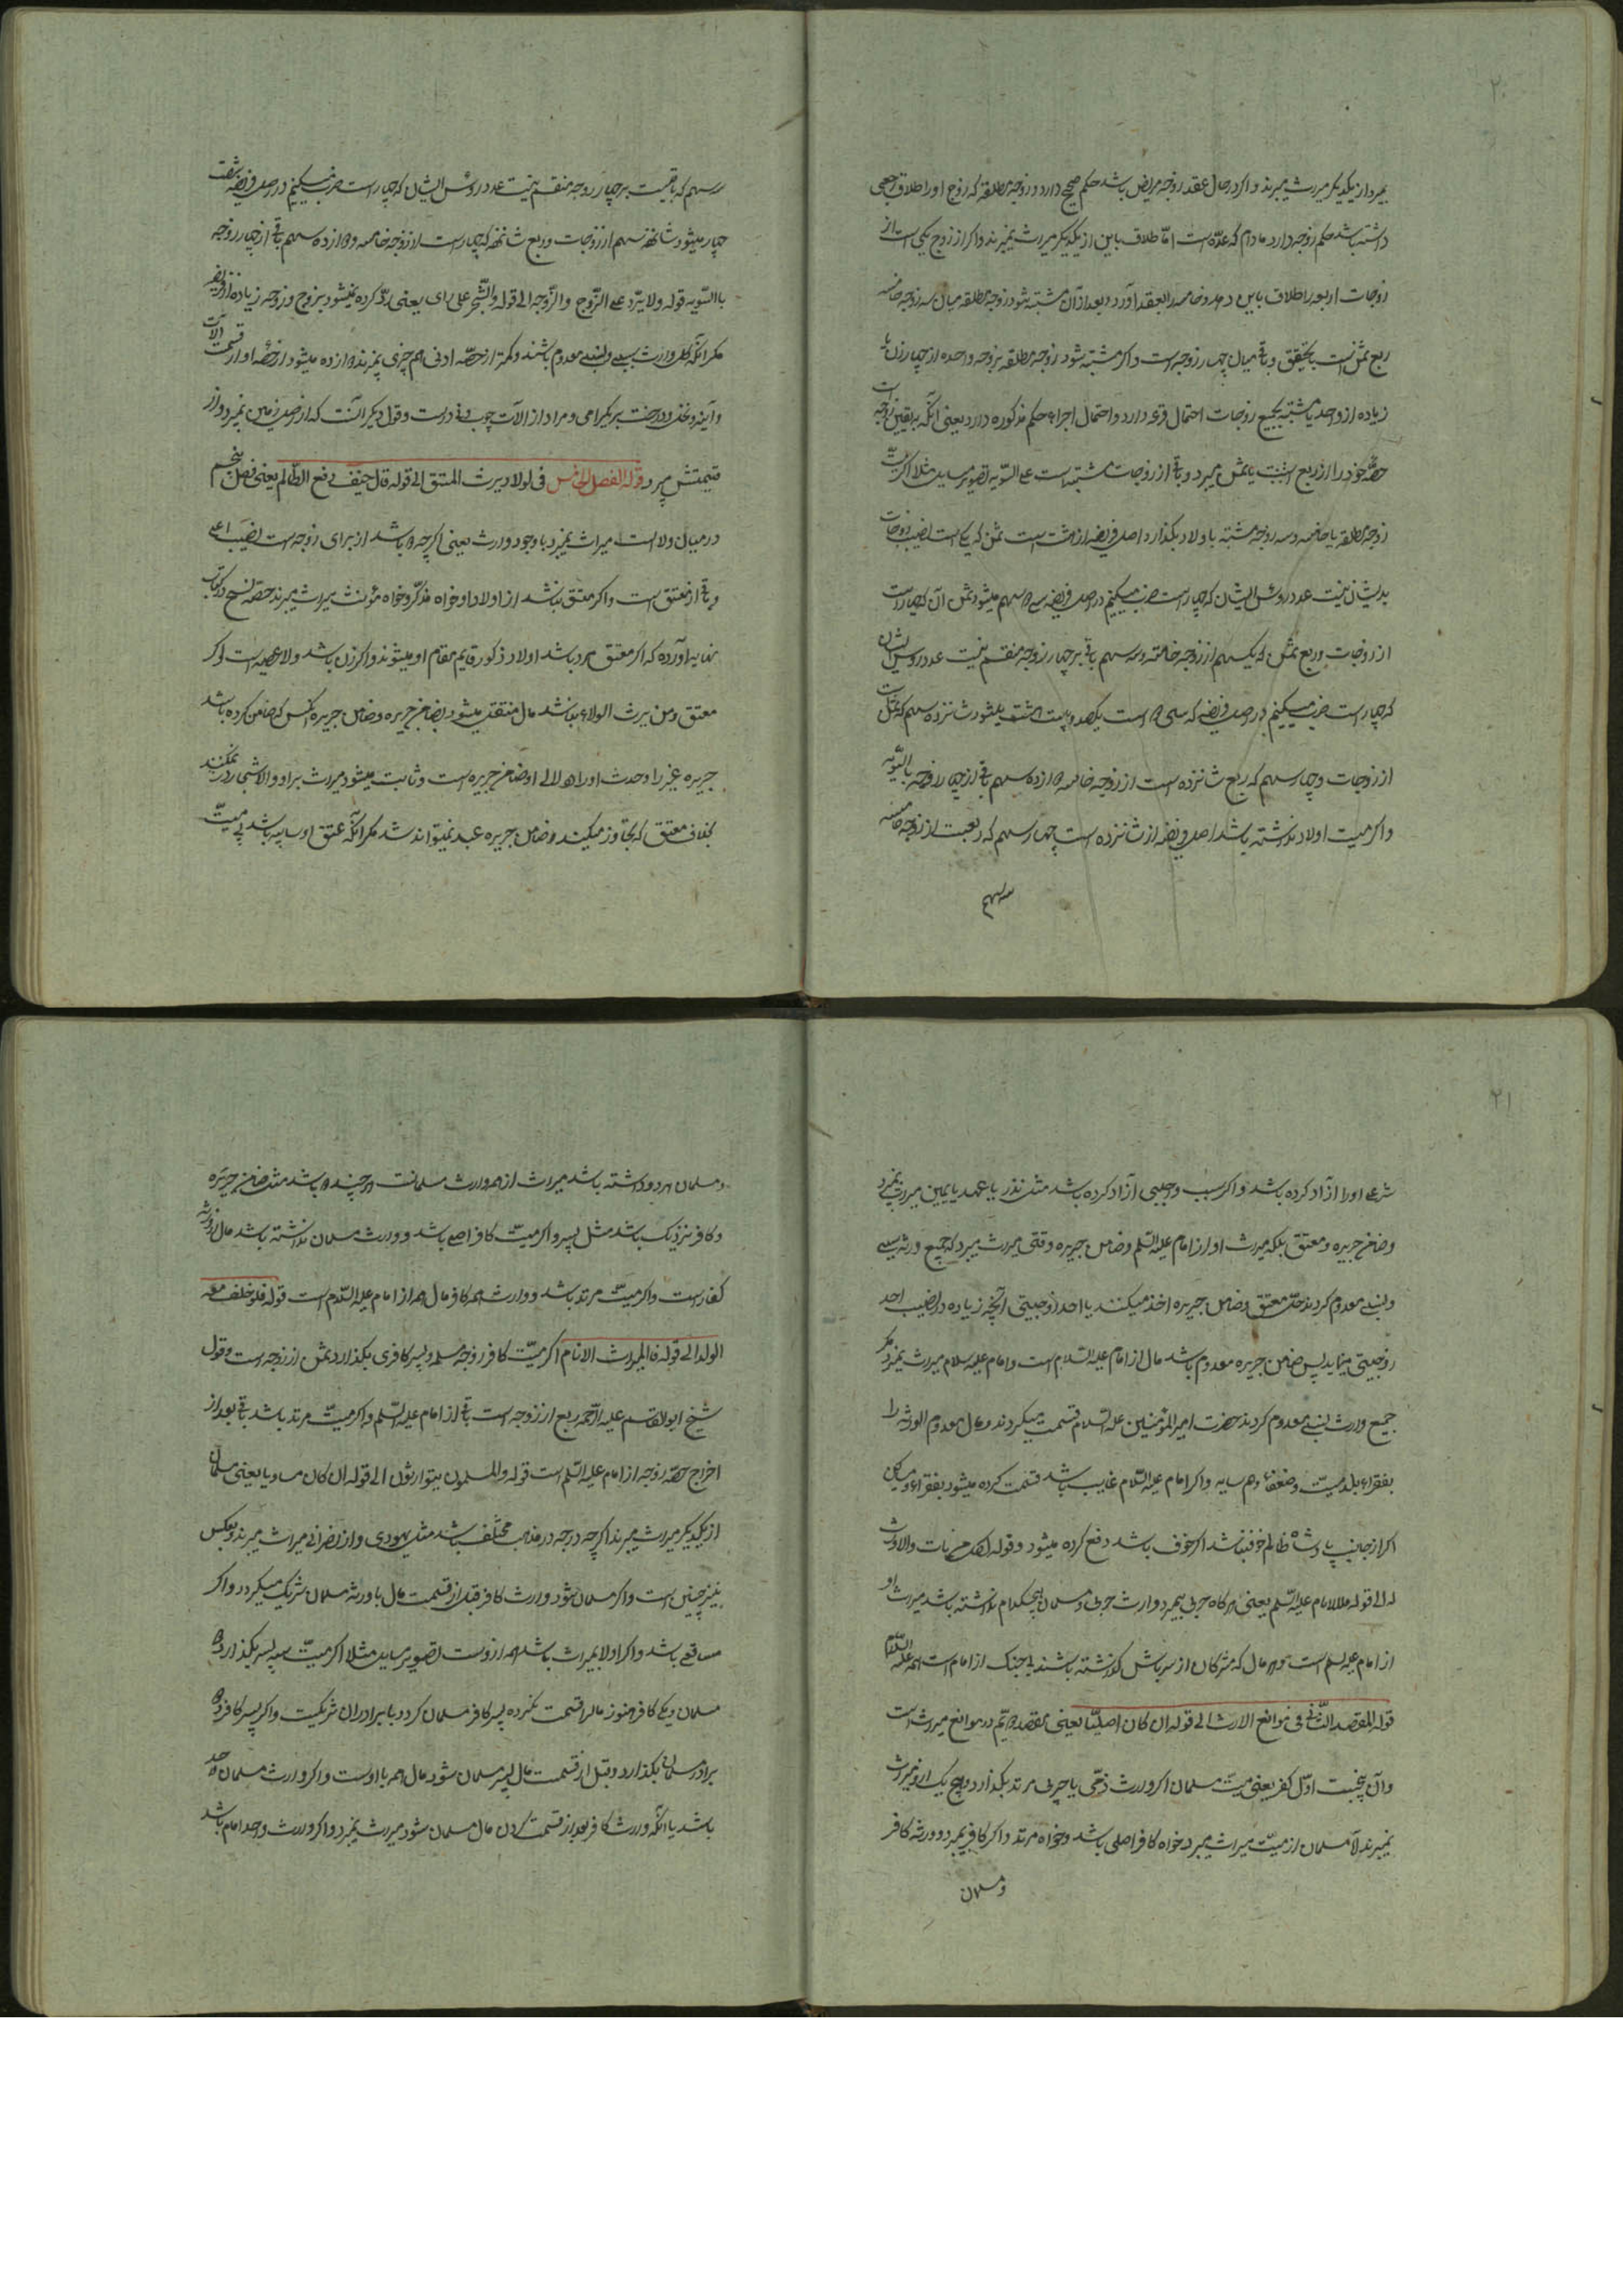 ۲۰
بمیرد از یکدیگر میراث میبرند و اگر در حال عقد زوجه مریض باشد حکم صحیح دارد و زوجه مطلقه که زوج او را طلاق رجعی
داشته باشد حکم زوجه دارد مادام که عده است اما طلاق باین از یکدیگر میراث نمیبرند و اگر از زوج یکی است از
زوجات اربعه را طلاق باین دهد و خامسه را بعقد آورد و بعد از آن مشتبه شود زوجه مطلقه میان سه زوجه خامسه
ربع ثمن است بتحقیق و باقی میان چهار زوجه است و اگر مشتبه شود زوجه مطلقه بزوجه واحده از چهار زن یا
زیاده از واحد یا مشتبه بجمیع زوجات احتمال قرعه دارد و احتمال اجراء حکم مذکوره دارد یعنی آنکه بیقین زوجه است
حصه خود را از ربع یا ثمن میبرد و باقی از زوجات مشتبه است علی السویه تصویر مساله مثلا اگر میت
زوجه مطلقه با خامسه و سه زوجه مشتبه با ولاد بگذارد اصل فریضه از هشت است ثمن که یکی است نصیب زوجات
بدیشان نیست عدد روس ایشان که چهار است ضرب میکنیم در اصل فریضه سی و دو سهم میشود ثمن آن که چهار است
از زوجات و ربع ثمن که یکسهم از زوجه خامسه و سه سهم باقی بر چهار زوجه منقسم نیست عدد روس ایشان
که چهار است ضرب میکنیم در اصل فریضه که سی و دو است یکصد و بیست و هشت میشود شانزده سهم که ثمن است
از زوجات و چهار سهم که ربع شانزده است از زوجه خامسه دوازده سهم باقی از چهار زوجه بالسویه
و اگر میت اولاد نداشته باشد اصل فریضه از شانزده است چهار سهم که ربعست از زوجه خامسه
سه سهم
سه سهم که باقیست بر چهار زوجه منقسم نیست عدد روس ایشان که چهار است ضرب میکنیم در اصل فریضه شصت
چهار میشود شانزده سهم از زوجات و ربع شانزده که چهار است از زوجه خامسه دوازده سهم باقی از چهار زوجه
بالسویه قوله ولا یرد علی الزوج والزوجه الی قوله والشجر علی رای یعنی رد کرده نمیشود بزوج و زوجه زیاده از فریضه
مگر آنکه کل وارث سببی و نسبی معدوم باشند و کمتر از حصه ادنی هم چیزی نمیبرند داده میشود از حصه او از قیمت آلات
و ابنیه و نخل و درخت بر یک رای و مراد از آلات چوب و در است و قول دیگر آنست که از اصل زمین نمیبرد و از
قیمتش میبرد قوله الفصل الخامس فی الولاء و یرث المعتق الی قوله قال خیف دفع الظالم یعنی فصل پنجم
در میان ولا است میراث نمیبرد با وجود وارث یعنی اگر چه باشد از برای زوجه است نصیب اعلی
و باقی از معتق است و اگر معتق نباشد از اولاد او خواه مذکر و خواه مؤنث میراث میبرند حصه شیخ در کتاب
نهایه آورده که اگر معتق مرد باشد اولاد ذکور قایم مقام او میشوند و اگر زن باشد ولا عصبه است و اگر
معتق و من یرث الولاء نباشد مال منتقل میشود بضامن جریره و ضامن جریره آنکس که ضامن کرده باشد
جریره غیر را و حدث او را و ثابت میشود میراث بر او و الاشبی رد نمیکند
بخلاف معتق که تجاوز میکند و ضامن جریره عبد نمیتواند شد مگر آنکه عتق او سایبه باشد
۲۱
شرعا او را آزاد کرده باشد و اگر بسبب وجبی آزاد کرده باشد مثل نذر یا عهد یا یمین میراث نمیبرد
و ضامن جریره و معتق بلکه میراث او از امام علیه السلم و ضامن جریره وقتی میراث میبرد که جمیع ورثه سببی
و نسبی معدوم گردند حتی معتق و ضامن جریره اخذ میکند با احد زوجیتی آنچه زیاده در نصیب احد
زوجیتی میماند پس ضامن جریره معدوم باشد مال از امام علیه السلام است و امام علیه سلام میراث نمیبرد مگر
جمیع وارث نسبی معدوم گردند حضرت امیر المؤمنین علیه السلام قسمت میکردند و مال معدوم الورثه را
بفقراء بلد میت و ضعفاء و هم سایه و اگر امام علیه السلام غایب باشد قسمت کرده میشود بفقراء و مساکین
اگر از جانب پادشاه ظالم خوف نباشد اگر خوف باشد دفع کرده میشود و قوله ولو مات ولا وارث
له الی قوله للامام علیه السلم یعنی هرگاه حربی بمیرد و وارث حربی و مسلمان هیچکدام نداشته باشد میراث او
از امام علیه سلم است و هر مال که مشرکان از سر باش گذشته باشند بی جنگ از امام است علیه السلام
قوله المقصد الثانی فی موانع الارث الی قوله ان کان اصلیا یعنی مقصد دویم در موانع میراث است
و آن پنجست اول کفر یعنی میت مسلمان اگر وارث ذمی یا حربی مرتد بگذارد هیچ یک از او میراث
نمیبرند الا مسلمان از میت میراث میبرد خواه کافر اصلی باشد و خواه مرتد و اگر کافر بمیرد و ورثه کافر
و مسلمان
و مسلمان هر دو داشته باشد میراث از وارث مسلمانست هر چند باشد مثل ضامن جریره
و کافر نزدیک باشد مثل پسر و اگر میت کافر اصلی باشد و وارث مسلمان نداشته باشد مال از ورثه
کفار است و اگر میت مرتد باشد و وارث هم کافر مال از امام علیه السلام است قوله فلو خلف معه
الولد الی قوله المیراث الامام اگر میت کافر زوجه مسلمه و پسر کافری بگذارد ثمن از زوجه است و قول
شیخ ابوالقاسم علیه الرحمه ربع از زوجه است باقی از امام علیه السلم و اگر میت مرتد باشد باقی بعد از
اخراج حصه زوجه از امام علیه السلم است قوله والمسلمون یتوارثون الی قوله ان کان مساویا یعنی مسلمان
از یکدیگر میراث میبرند اگر چه در درجه در مذهب مختلف باشند مثل یهودی و از نصرانی میراث میبرند و بعکس
نیز چنین است و اگر مسلمان شود وارث کافر قبل از قسمت مال با ورثه مسلمان شریک میگردد و اگر
مساوی باشد و اگر اولا بمیراث باشد همه از اوست تصویر مساله مثلا اگر میت سه پسر بگذارد دو
مسلمان و یکی کافر هنوز مال را قسمت نکرده پسر کافر مسلمان گردد با برادران شریکست و اگر پسر کافر و
برادر مسلمان بگذارد و قبل از قسمت مال پسر مسلمان شود مال همه با اوست و اگر وارث مسلمان واحد
باشد یا آنکه وارث کافر بعد از قسمت کردن مال مسلمان شود میراث نمیبرد و اگر وارث واحد امام باشد